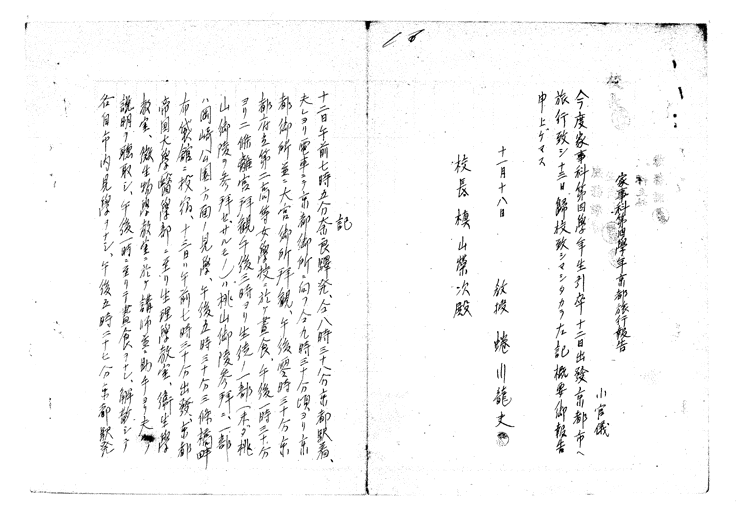 家事科第四學年京都旅行報告
小官儀
今度家事科第四學年生引卒十二日出發京都市ヘ
旅行致シ十三日歸校致シマシタカラ左記概要御報告
申上ゲマス
十一月十八日
教授 蜷川龍夫
校長 槇山榮次殿
記
十二日午前七時五分奈良驛発、仝八時三十八分京都駅着、
夫レヨリ電車ニテ京都御所ニ向フ仝九時三十分頃ヨリ京
都御所並ニ大宮御所拝観、午後零時三十分京
都府立第二高等女學校ニ於テ晝食、午後一時三十分
ヨリ二條離宮拝観午後三時ヨリ生徒ノ一部(未ダ桃
山御陵ヲ参拝セザルモノ)ハ桃山御陵参拝ニ一部
ハ岡崎公園方面ノ見學、午後五時三十分三條橋畔
布袋館ニ投宿、十三日ハ午前七時三十分出發、京都
帝国大學醫學部ニ至リ生理學教室、衛生學
教室、微生物學教室ニ於テ講師並ニ助手ヨリ夫々
説明ヲ聴取シ、午後一時ニ至リテ晝食ヲナシ、解散シテ
各自市内見學ヲナシ、午後五時二十七分京都駅発